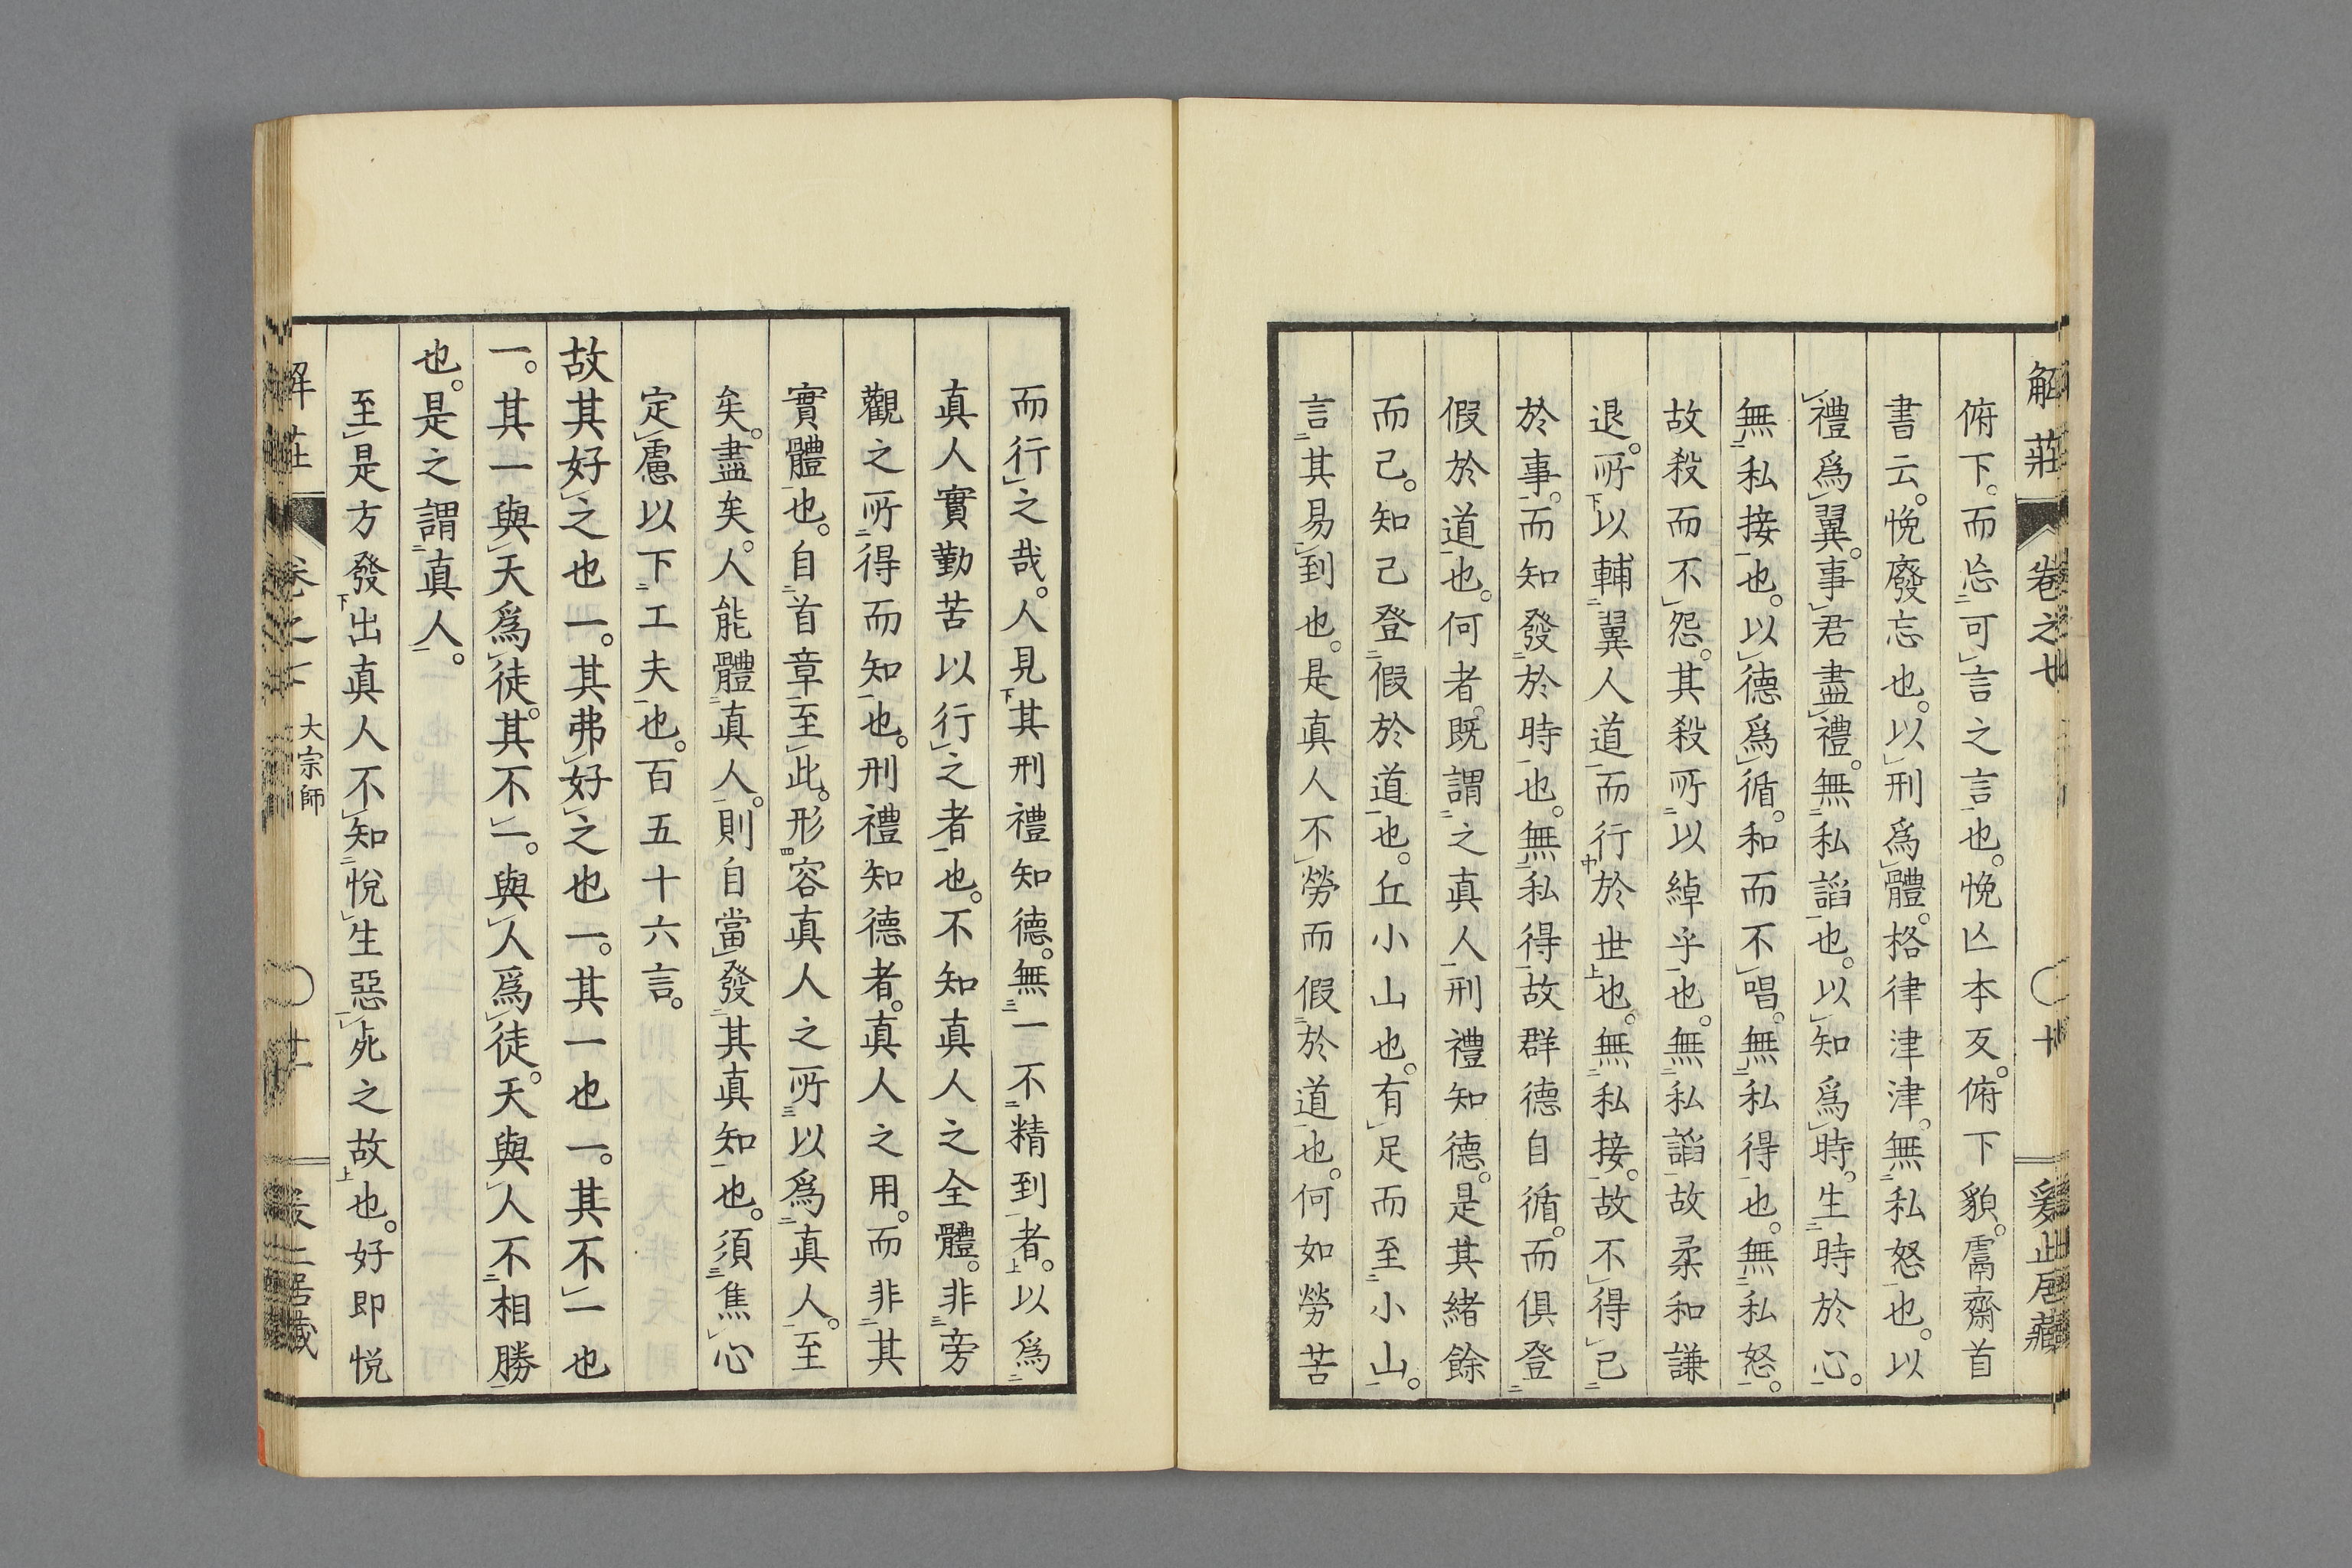 解莊 卷之七 十 爰止居藏
俯下。而忘可言之言也。悗亾本亥。俯下貌。鬳齋首
書云。悗廢忘也。以刑爲體。格律津津。無私怒也。以
禮爲翼。事君盡禮。無私謟也。以知爲時。生時於心。
無私接也。以德爲循。和而不唱。無私得也。無私怒。
故殺而不怨。其殺所以綽乎也。無私謟故柔和謙
退。所以輔翼人道而行於世也。無私接。故不得已
於事。而知發於時也。無私得。故群德自循。而俱登
假於道也。何者。既謂之真人。刑禮知德。是其緒餘
而己。知己登假於道也。丘小山也。有足而至小山。
言其易到也。是真人不勞而假於道也。何如勞苦
而行之哉。人見其刑禮知德。無一不精到者。以爲
真人實勤苦以行之者也。不知真人之全體。非旁
觀之所得而知也。刑禮知德者。真人之用。而非其
實體也。自首章至此。形容真人之所以爲真人。至
矣。盡矣。人能體真人。則自當發其真知也。須焦心
定慮以下工夫也。百五十六言。
故其好之也一。其弗好之也一。其一也一。其不一也
一。其一與天爲徒。其不一。與人爲徒。天與人不相勝
也。是之謂真人。
至是方發出真人不知悅生惡死之故也。好即悅
解莊 卷之七 大宗師